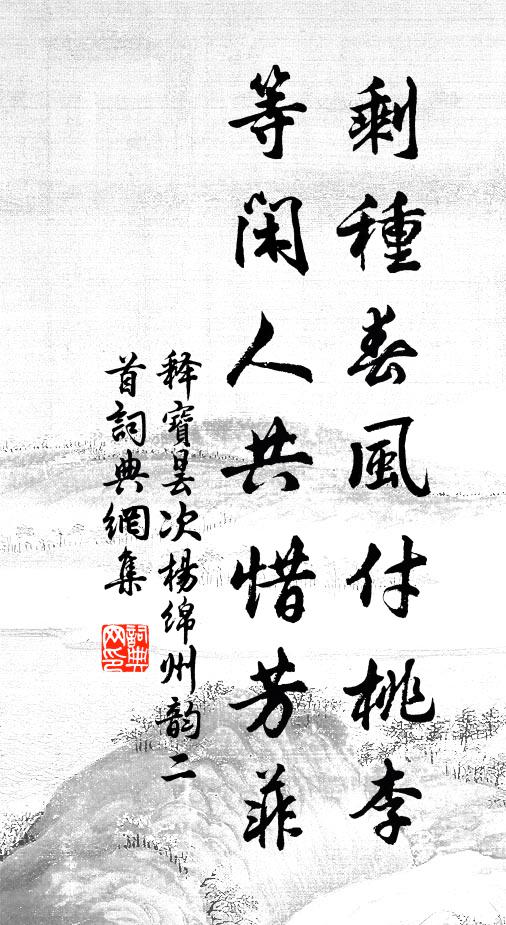 剩種春風付桃李
等閑人共惜芳菲
释寶曇次楊綿州韵二
首詞典網集
詞典
网印